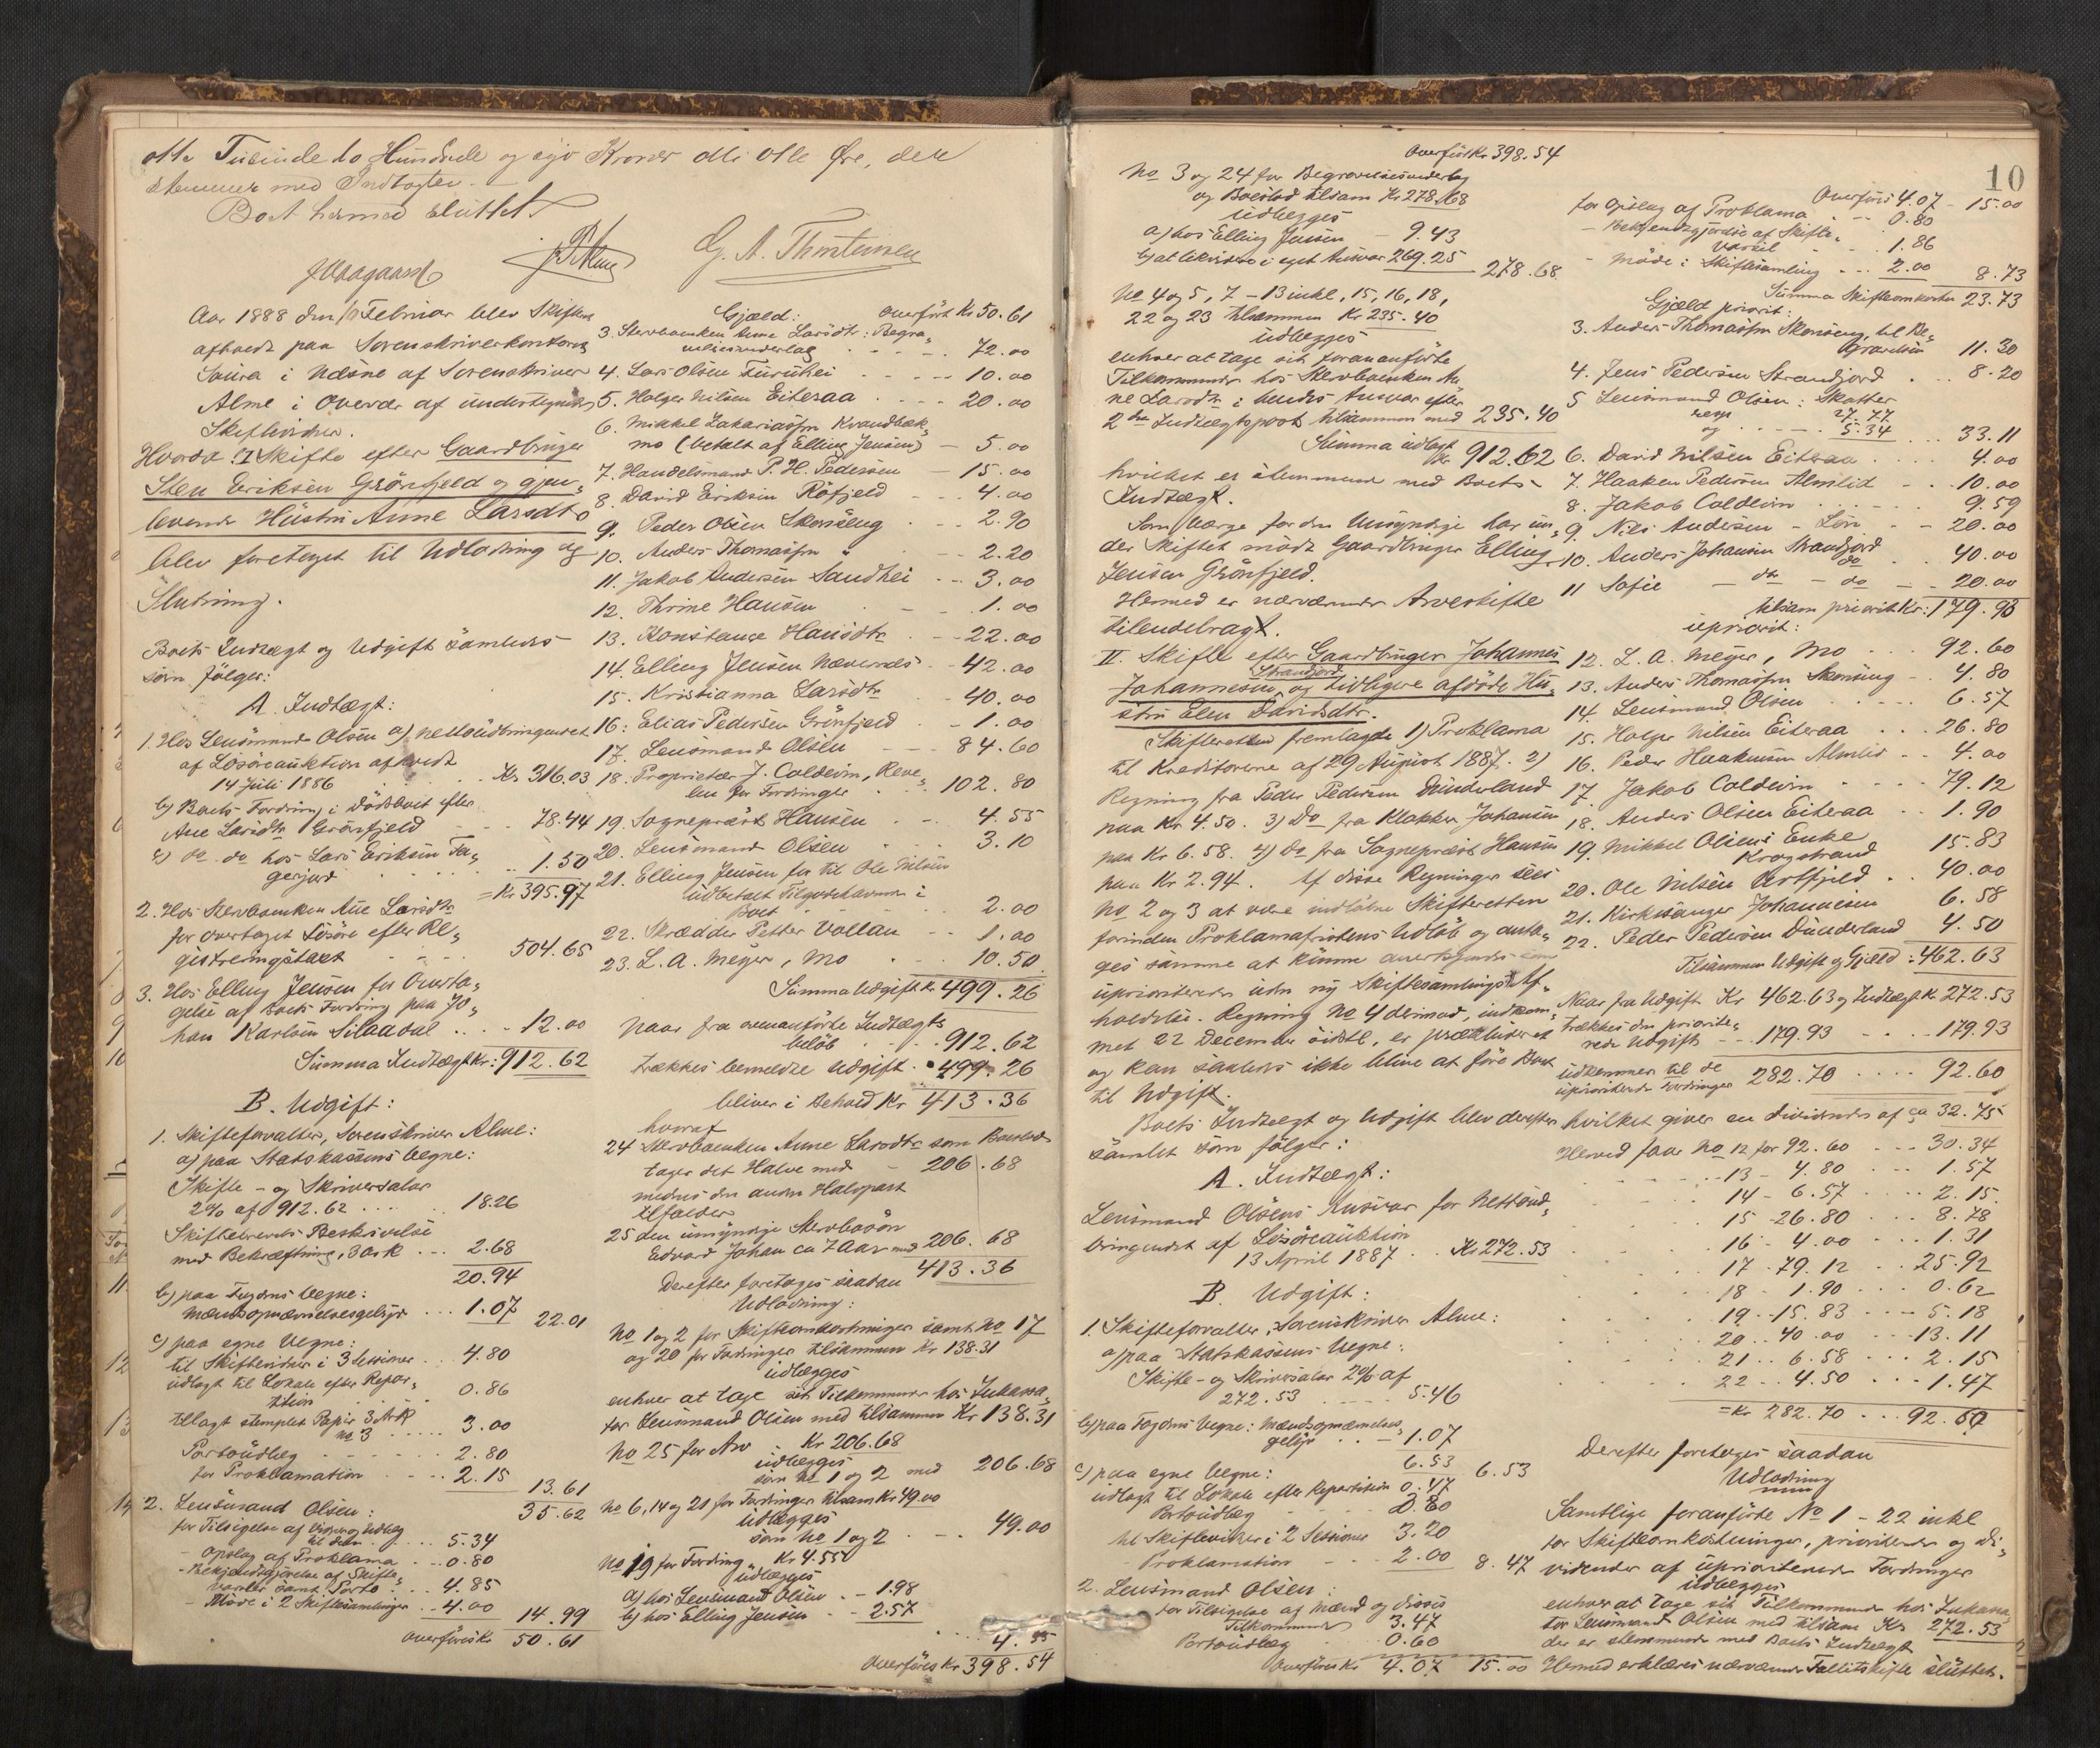 otte Tusinde to Hundrede og syv Kroner otti otte Øre, der
stemmer med Indtægten. —
Boet hermed sluttet.
G. A. Thorsteinsen
Aar 1888 den 10 Februar blev Skifteret
afholdt paa Sorenskriverkontoret
Soura i Næsne af Sorenskriver
Alme i Overvær af undertegnede
Skiftevidner.
Hvorda: I Skifte efter Gaardbruger
Sten Eriksen Grönfjeld og gjen-
levende Hustru Anne Larsdtr
blev foretaget til Udlodning og
Slutning.
Boets Indtægt og Udgift samledes
som følger:
A. Indtægt:
1. Hos Lensmand Olsen a) nettoudbringendet
af Løsöreauktion afholdt
14 Juli 1886 . . . Kr 316.03
b) Boets Fordring i Dödsboet efter
Ane Larsdtr Grönfjeld . . . 78.44
c) do do hos Lars Eriksen Fa-
gerjord . . . 1.50
= Kr 395.97
2. Hos Stervboenken Ane Larsdtr
for overtaget Lösöre efter Re-
gistreringstaxt . . . 504.65
3. Hos Elling Jensen for Overta-
gelse af Boets Fordring paa Jo-
han Karlsen Silaadal . . . 12.00
Summa Indtægt Kr: 912.62
B. Udgift:
1. Skifteforvalter, Sorenskriver Alme:
a) paa Statskassens Vegne:
Skifte- og Skriversalar
2% af 912.62 . . . 18.26
Skiftebrevets Beskrivelse
med Bekræftning, 3 Ark . . . 2.68
20.94
b) paa Fogdens Vegne:
Mændsopnævnelsesgebyr . . . 1.07 22.01
c) paa egne Vegne:
til Skiftevidner i 3 Sessioner . . 4.80
udlagt til Lokale efter Repar-
tition . . . 0.86
tillagt stemplet Papir 3 Ark
no 3 . . . 3.00
Portoudlæg . . . 2.80
for Proklamation . . . 2.15 13.61
35.62
2. Lensmand Olsen:
for Tilsigelse af Vidner og Udlæg
til dem . . . 5.34
- Opslag af Proklama . . . 0.80
- Bekjendtgjørelse af Skifte-
varsler samt Porto . . . 4.85
- Möde i 2 Skiftesamlinger . . 4.00 14.99
overföres Kr 50.61
Gjæld: overfört Kr 50.61
3. Stervboenken Anne Larsdtr: Begra-
velsesunderlag . . . 72.00
4. Lars Olsen Furuhei . . . 10.00
5. Holger Nilsen Eiteraa . . . 20.00
6. Mikkel Zakariassen Kvandbæk-
mo (betalt af Elling Jensen) — 5.00
7. Handelsmand P. H. Pedersen — 15.00
8. David Eriksen Röfjeld . . . 4.00
9. Peder Olsen Skonseng . . . 2.90
10. Anders Thomassen " . . . 2.20
11. Jakob Andersen Sandhei . . 3.00
12. Thrine Hansen . . . 1.00
13. Konstance Hansdtr . . . 22.00
14. Elling Jensen Nævernes . . 42.00
15. Kristianna Larsdtr . . . 40.00
16: Elias Pedersen Grönfjeld . . 1.00
17. Lensmand Olsen . . . 84.60
18. Proprietær J. Coldevin, Reve-
len for Fordringer . . . 102.80
19. Sognepræst Hansen . . . 4.55
20. Lensmand Olsen . . . 3.10
21. Elling Jensen for til Ole Nilsen
udbetalt Tilgodehavende i
Boet . . . 2.00
22. Skrædder Petter Vollan . . 1.00
23. L. A. Meyer, Mo . . . 10.50
Summa Udgift Kr 499.26
Naar fra ovenanførte Indtægts
belöb . . . 912.62
trækkes bemeldte Udgift . . 499.26
bliver i Behold Kr 413.36
hvoraf
24 Stervboenken Anne Larsdtr som Boeslod
tager det Halve med — 206.68
medens den anden Halvpart
tilfalder
25 den umyndige Stervbosön
Edvard Johan ca 7 Aar med 206.68
413.36
Derefter foretoges saadan
Udlodning:
No 1 og 2 for Skifteomkostninger samt No 17
og 20 for Fordringer tilsammen Kr 138.31
udlægges
enhver at tage sit Tilkommende hos Inkassa-
tor Lensmand Olsen med tilsammen Kr 138.31
No 25 for Arv Kr 206.68
udlægges
som No 1 og 2 med 206.68
No 6, 14 og 21 for Fordringer tilsam Kr 49.00
udlægges
som No 1 og 2 . . . 49.00
No 19 for Fordring Kr 4.55
udlægges
a) hos Lensmand Olsen . . 1.98
b) hos Elling Jensen . . 2.57
4.55
Overföres Kr 398.54
10
Overfört Kr 398.54
No 3 og 24 for Begravelsesunderlag
og Boeslod tilsam Kr 278.68
udlægges
a) hos Elling Jensen — 9.43
b) at likvidere i eget Ansvar 269.25 278.68
No 4 og 5, 7 – 13 inkl, 15, 16, 18,
22 og 23 tilsammen Kr 235.40
udlægges
enhver at tage sit foranförte
Tilkommende hos Stervboenken An-
ne Larsdtr i hendes Ansvar efter
2den Indtægtspost tilsammen med 235.40
Summa udlagt Kr 912.62
hvilket er stemmende med Boets
Indtægt.
Som Værge for den Umyndige har un-
der Skiftet mödt Gaardbruger Elling
Jensen Grönfjeld.
Hermed er nærværende Arveskifte
tilendebragt.
II. Skifte efter Gaardbruger Johannes
Strandjord
Johannesen og tidligere afdöde Hu-
stru Elen Davidsdtr.
Skifteretten fremlagde 1) Proklama
til Kreditorerne af 29 August 1887. 2)
Regning fra Peder Pedersen Dunderland
paa Kr 4.50. 3) Do fra Klokker Johansen
paa Kr 6.58. 4) Do fra Sognepræst Hansen
paa Kr 2.94. Af disse Regninger sees
No 2 og 3 at være indløbne Skifteretten
forinden Proklamafristens Udløb og anta-
ges samme at kunne
uprioriterede uden ny Skiftesamlings Af-
holdelse. Regning No 4 derimod, indkom-
met 22 December sidstl, er prækluderet
og kan saaledes ikke blive at före Boet
til Udgift.
Boets Indtægt og Udgift blev derefter
samlet som følger:
A. Indtægt:
Lensmand Olsens Ansvar for Nettoud-
bringendet af Lösöreauktion
13 April 1887 . . Kr 272.53
B. Udgift:
1. Skifteforvalter, Sorenskriver Alme:
a) paa Statskassens Vegne:
Skifte- og Skriversalar 2% af
272.53 . . . 5.46
b) paa Fogdens Vegne: Mændsopnævnelses-
gebyr . . . 1.07
6.53 6.53
c) paa egne Vegne:
udlagt til Lokale efter Repartition 0.47
Portoudlæg . . . 2.80
til Skiftevidner i 2 Sessioner 3.20
- Proklamation . . . 2.00 8.47
2. Lensmand Olsen:
for Tilsigelse af Mænd og disses
Tilkommende 3.47
Portoudlæg . . . 0.60
Overföres Kr 4.07 15.00
Overfört 4.07 – 15.00
for Opslag af Proklama . . . 0.80
- Bekjendtgjørelse af Skifte-
varsel . . . 1.86
- Möde i Skiftesamling . . . 2.00 8.73
Summa Skifteomkostn 23.73
Gjæld priorit:
3. Anders Thomassen Skonseng til Be-
gravelsen 11.30
4. Jens Pedersen Strandjord . . . 8.20
5 Lensmand Olsen: Skatter
resp. 27.77
og . . . 5.34 . . . 33.11
6. David Nilsen Eiteraa . . . 4.00
7. Haaken Pedersen Almlid . . . 10.00
8. Jakob Coldevin . . . 9.59
9. Nils Andersen – Lön . . . 20.00
10. Anders Johansen Strandjord do . . 40.00
11 Sofie — do — do — 20.00
tilsam priorit Kr: 179.93
upriorit:
12. L. A. Meyer, Mo . . . 92.60
13. Anders Thomassen Skonseng . . 4.80
14. Lensmand Olsen . . . 6.57
15. Holger Nilsen Eiteraa . . . 26.80
16. Peder Haakensen Almlid . . 4.00
17. Jakob Coldevin . . . 79.12
18. Anders Olsen Eiteraa . . . 1.90
19. Mikkel Olsens Enke
Krogstrand 15.83
20. Ole Nilsen Urtfjeld . . . 40.00
21. Kirkesanger Johannesen 6.58
22. Peder Pedersen Dunderland 4.50
Tilsammen Udgift og Gjæld: 462.63
Naar fra Udgift Kr 462.63 og Indtægt Kr 272.53
trækkes den priorite-
rede Udgift — 179.93 . . . 179.93
udkommer til de
uprioriterede Fordringer 282.70 . . . 92.60
hvilket giver en Dividende af ca 32.75
Herved faar No 12 for 92.60 . . . 30.34
13 – 4.80 . . . 1.57
14 – 6.57 . . . 2.15
15 – 26.80 . . . 8.78
16 – 4.00 . . . 1.31
17 – 79.12 . . . 25.92
18 – 1.90 . . . 0.62
19 – 15.83 . . . 5.18
20 . . 40.00 . . . 13.11
21 . . 6.58 . . . 2.15
22 . . 4.50 . . . 1.47
= Kr 282.70 . . . 92.60
Derefter foretoges saadan
Udlodning
Samtlige foranförte No 1 – 22 inkl
for Skifteomkostninger, prioriterede og Di-
videnden af uprioriterede Fordringer
udlægges
enhver at tage sit Tilkommende hos Inkassa-
tor Lensmand Olsen med tilsam Kr 272.53
der er stemmende med Boets Indtægt
Hermed erklæres nærværende Fallitskifte sluttet.